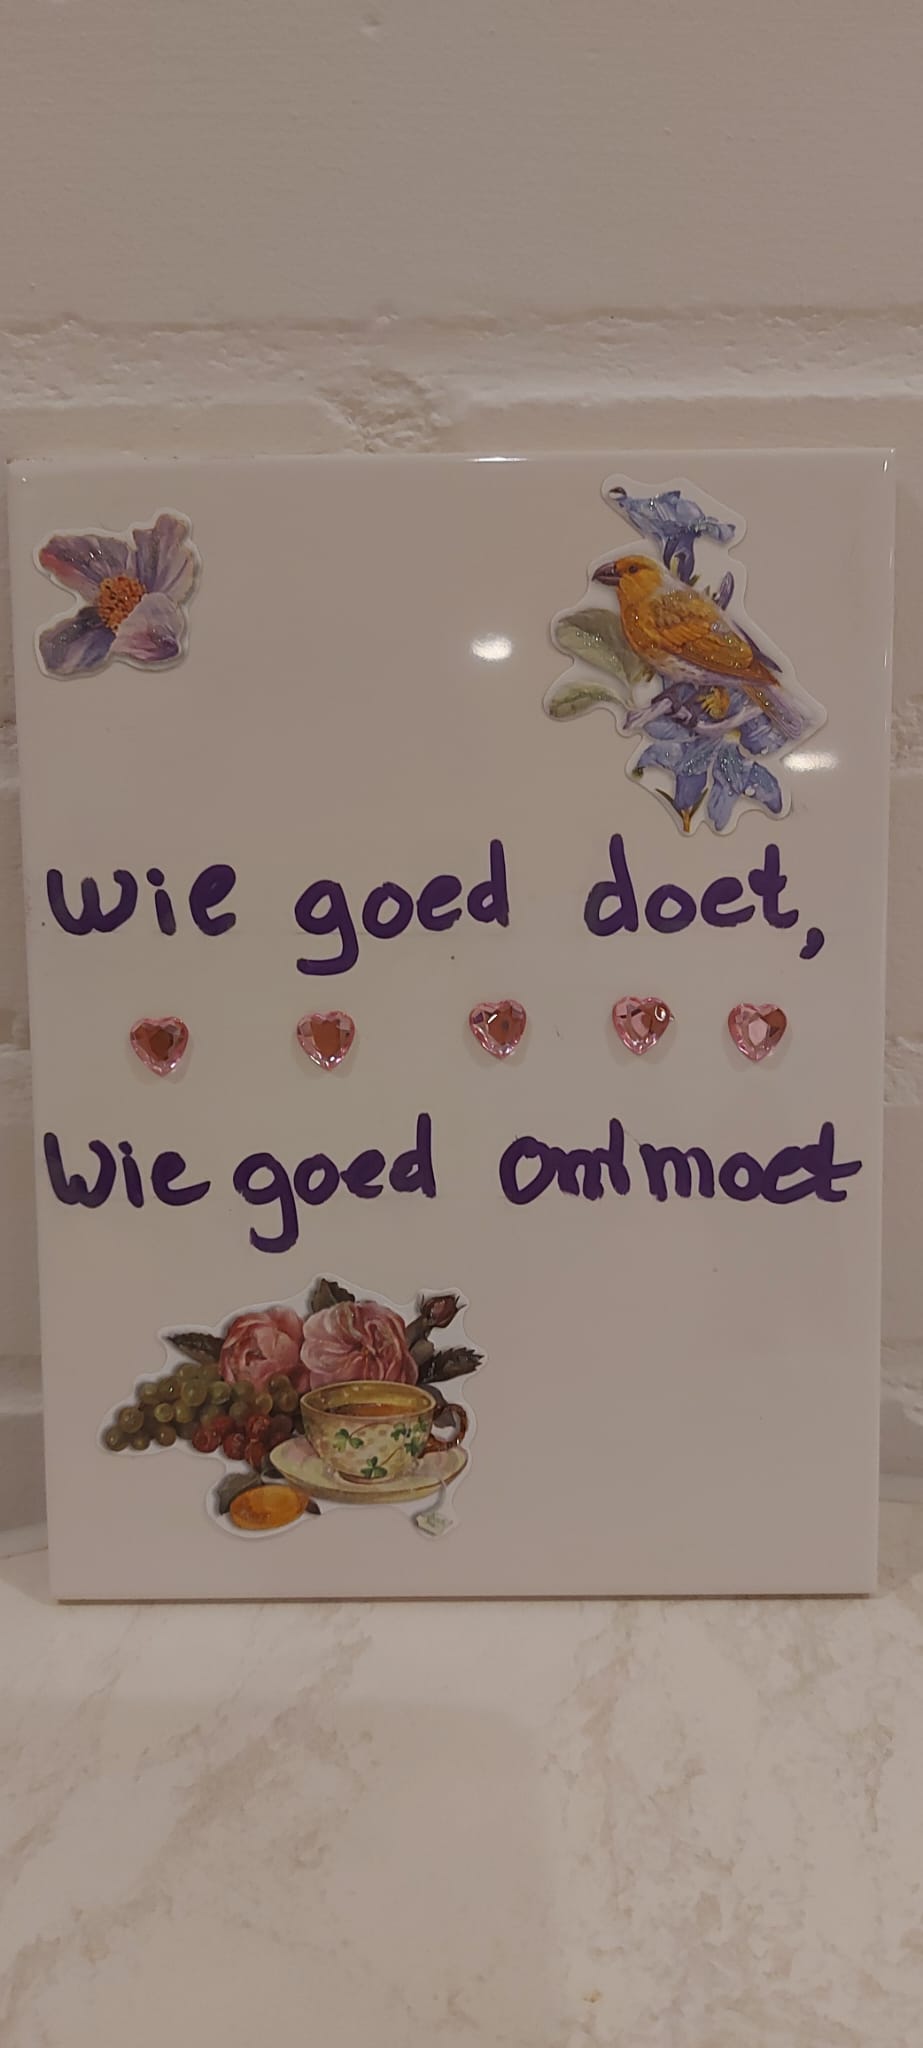 Wie goed doet,
Wie goed ontmoet